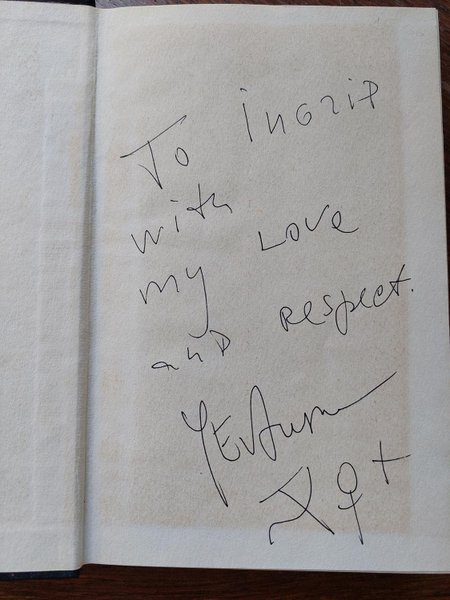 To Ingrid
with
my Love
and respect.